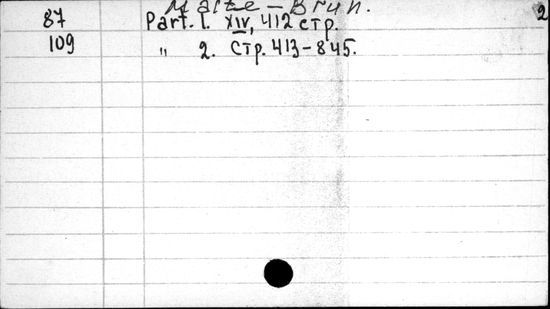 Malte-Brun. 2
87 Part. 1. XIV, 412 стр.
109 " 2. Стр. 413-845.